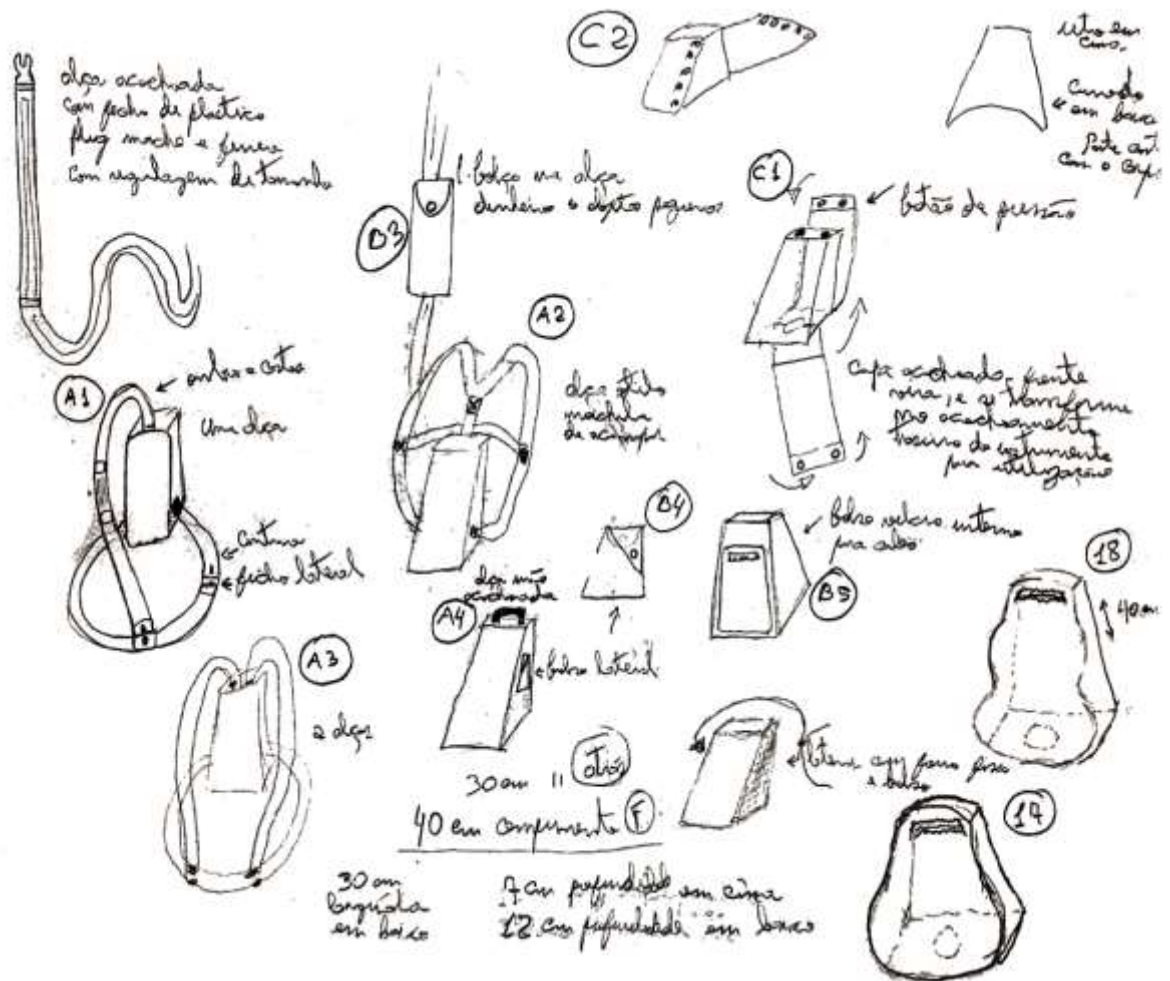 alça acochoada
com fecho de plastico
plug macho e femea
com regulagem de tamanho
C2
reto em
cima
em baixo
Parte
com o
B3
1 bolço na alça
dinheiro e objetos pequenos
C1
botão de pressão
A1
ombro e costas
uma alça
costura
fecho lateral
A2
alça estilo
mochila
de acampar
capa acochoado, frente
vira, e se transforma
no acochoamento
do instrumento
para utilização
B4
B5
bolso interno
para cabo
18
40 cm
alça não
acochoada
A4
bolso lateral
A3
2 alças
30 cm 11 atrás
40 cm comprimento F
lateral
e baixo
17
30 cm
largura
em baixo
7 cm profundidade em cima
12 cm profundidade em baixo